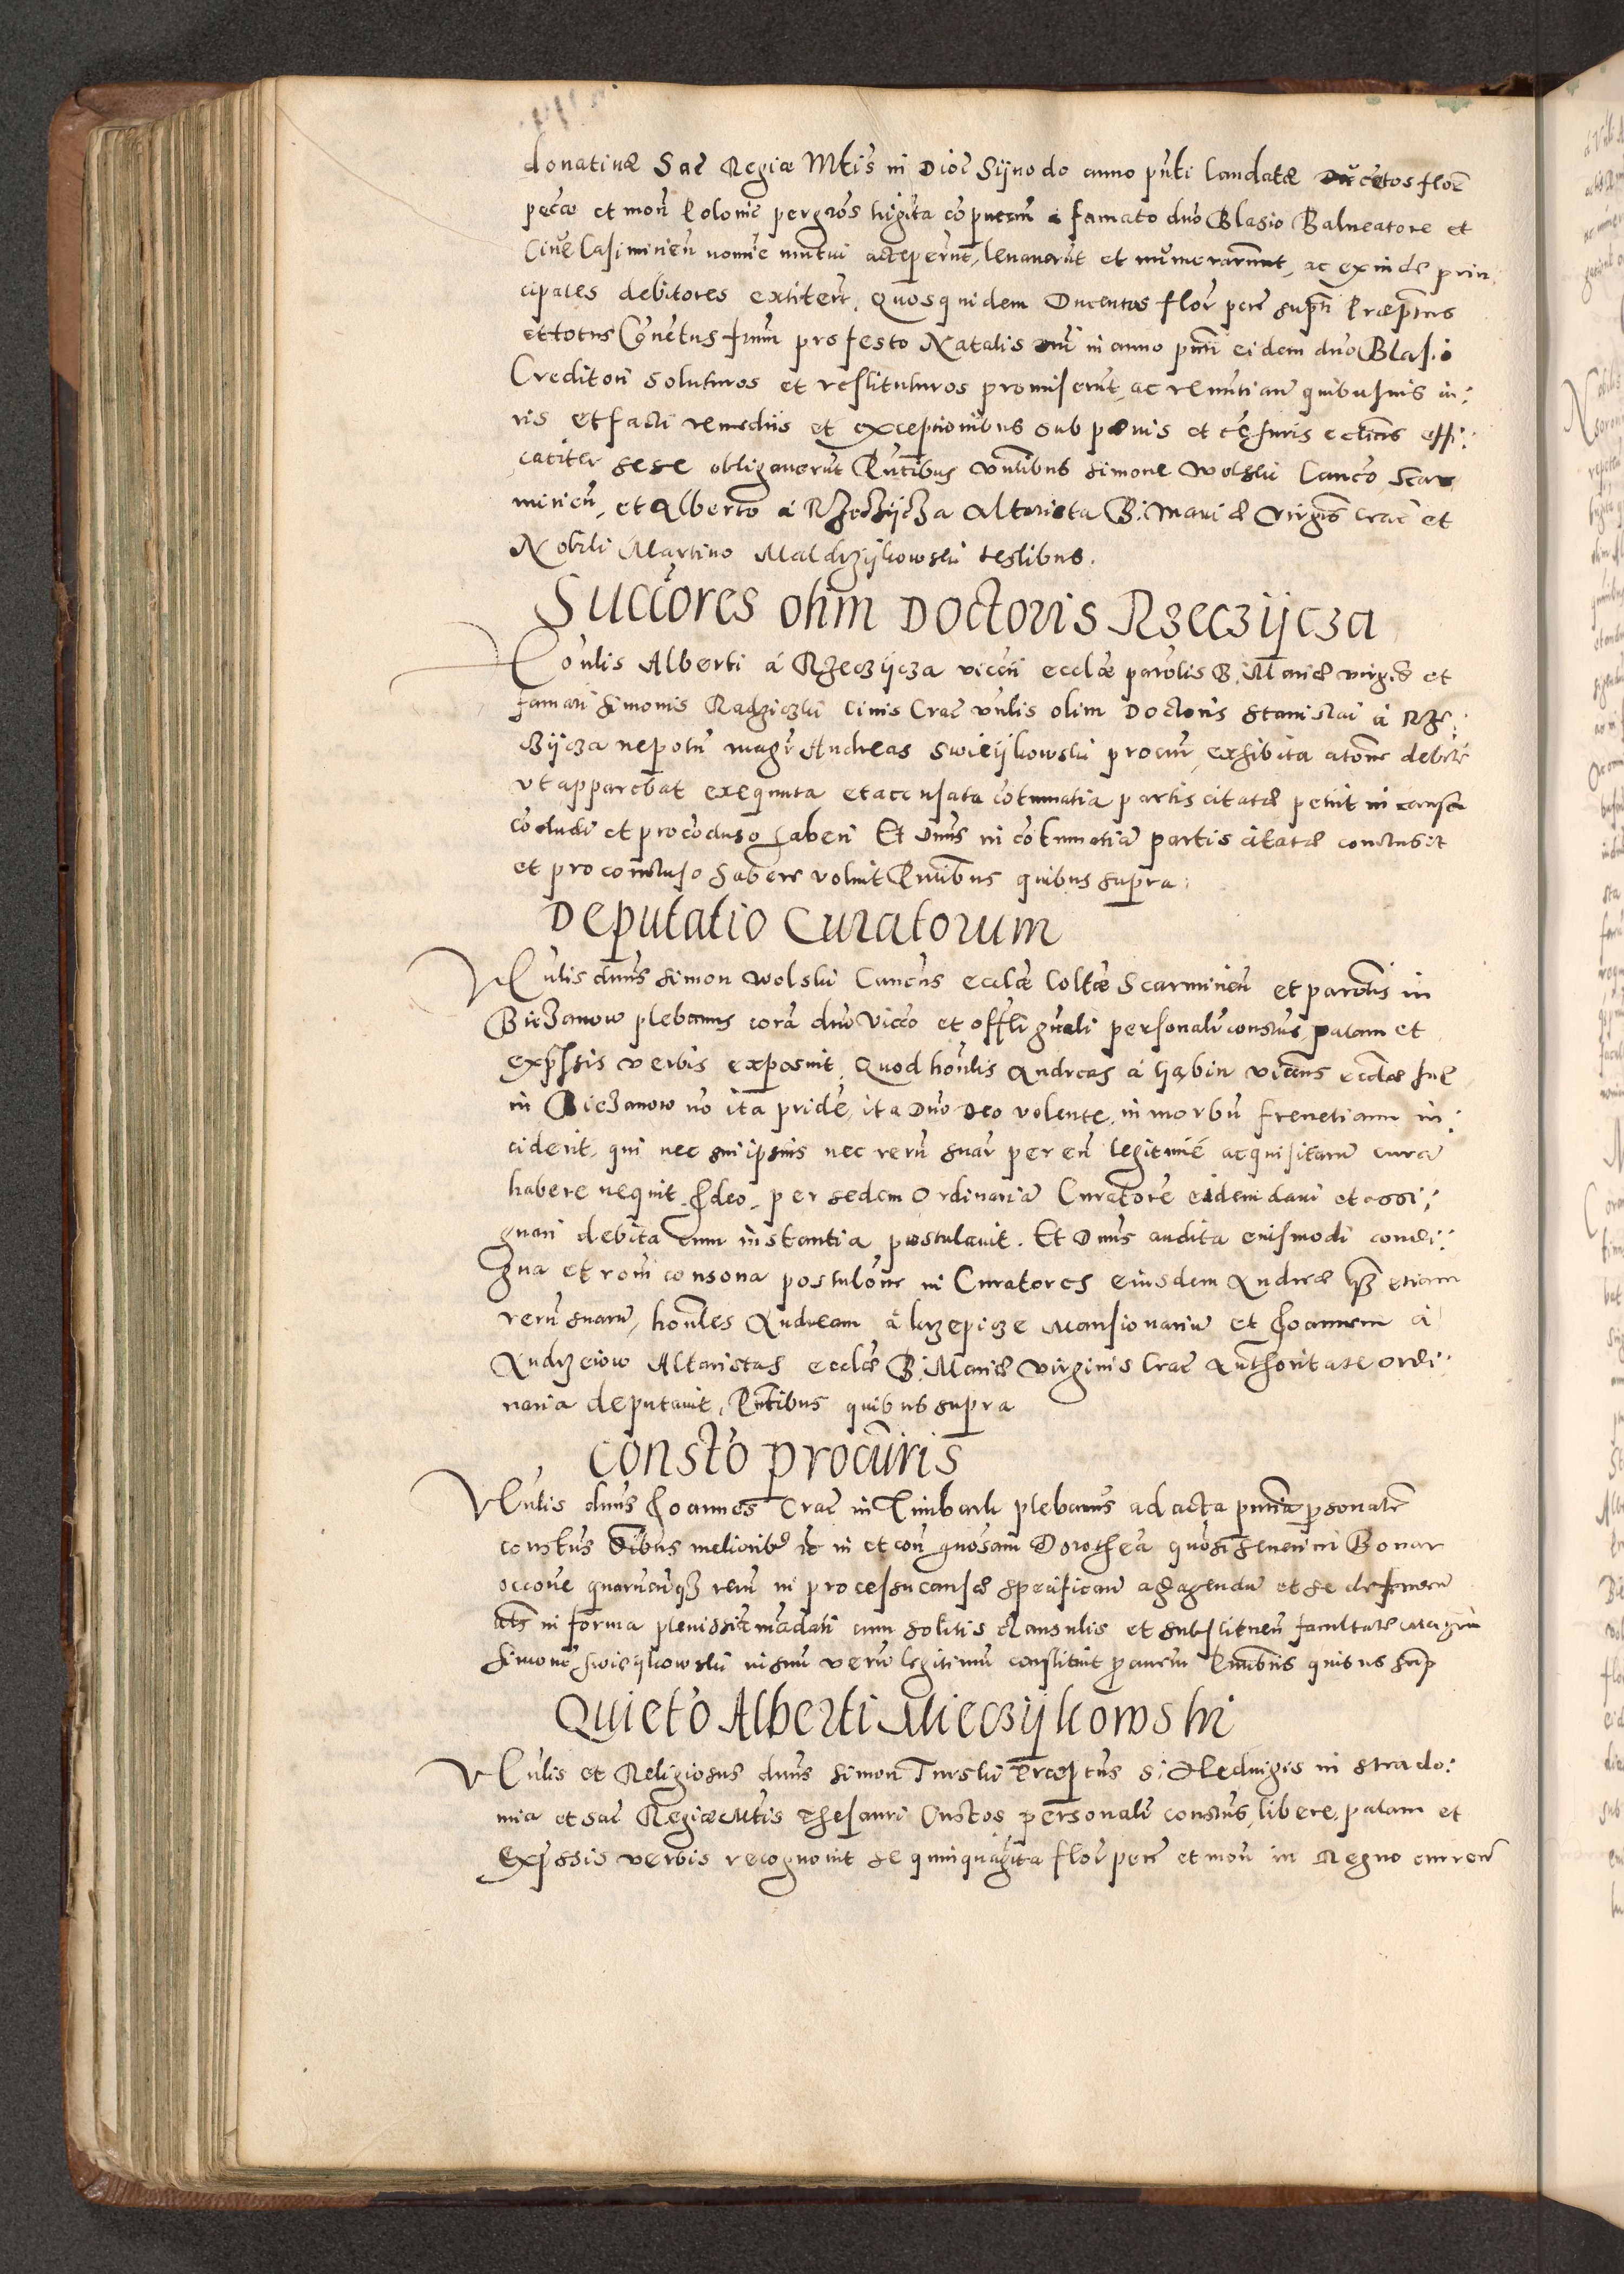 donatiuæ Sac̄ Regiæ Mt̄is in Dioc̄ Sijnodo anno pn̄ti laudatæ Ducētos floc̄
pec̄æ et mon̄ Polonic̄ per gros̄ trigīta cōputan̄ a famato dn̄o Blasio Balneatore et
Ciue Casimirien̄ nomīe mutui acceperūnt, leuauerūt et numerarunt, ac exinde prin:
cipales debitores extiterūt. Quosquidem Ducentos floř pec̄ supr̄ti Præp̄tus
et totus Cōuetus pro festo Natalis Dn̄i in anno pn̄ti eidem dn̄o Blasio
Creditori soluturos et restituturos promiserūt, ac renūtiauē quibusuis iu:
ris et facti remediis et exceptionibus sub pœnis et cēsuris ecl̄icis effi:
caciter sese obligauerūt Pn̄tibus Vn̄libus Simone Wolski Canco Scar
mirien̄, et Alberto à Rzecżijcża Altarista B: Mariæ Virgīs Crac̄ et
Nobili Martino Maldrzijkowski testibus.
Succ̄ores olim Doctoris Rzeczijcza
Hoūlis Alberti à Rzeczijcza vicc̄ii eccl̄æ parōlis B. Mariæ virgīs et
famati Simonis Radziczki Ciuis Crac̄ vn̄lis olim Doctoris Stanislai à Rze:
czijcza nepotū mag̅r Andreas Swieijkowski procur̄, exhibita atōne debite
vt apparebat exequuta et accusata cōtumatia partis citatæ petiit in causa
cōcludi et pro cōcluso haberi Et Dn̄us in cōtumatiā partis citatæ conclusit
et pro concluso habere voluit Pn̄tibus quibus supra.
Deputatio Curatorum
Vn̄lis dn̄us Simon Wolski Canc̄us eccl̄æ Coll̄æ Scarmirien̄ et parōlis in
Biezanow plebanus corā dn̄o Vic̄o et offl̄i gn̄ali personalr̄ constus̄, palam et
exp̄ssis verbis exposuit, Quod hoūlis Andreas à vicc̄ius eccl̄æ suæ
in Biezanow nō ita pridē, ita Dn̄o Deo volente, in morbū freneticum in:
ciderit, qui nec sui ipsius nec rerū suar̄ per eū legitimē acquisitarū curā
habere nequit. Ideo per sedem Ordinariā Curatorē eidem dari et assi:
gnari debita cum instantia postulauit. Et Dn̄us audita eiusmodi condi:
gna et rōni consona postulōne in Curatores eiusdem Andreæ etiam
rerū suarū, hoūles Andream à Krzepicze Mansionariū et Ioannem à
Andrzeiow Altaristas eccl̄æ B. Mariæ Virginis Crac̄ Authoritate ordi:
naria deputauit, Pn̄tibus quibus supra
Constō procūris
Vn̄lis dn̄us Ioannes Crac̄ in Timbark plebanus ad acta pn̄tia p̄sonalr̄
constus̄ oībus melioribꝫ etc̄ in et cōn̄ gn̄osam Dorotheā gn̄osi Seuerini Bonar
occōne quarūcūqꝫ rerū in processu causæ specificatarū ad agendū et se defendēn̄
in forma plenissīe mādati cum solitis clausulis et substituen̄ facultate Magrū
Simonē Swieijkowski in suū verū legitimū constituit p̄curem Pn̄tibus quibus sup̄
Quietō Alberti Mieczijkowski
Vn̄lis et Religiosus dn̄us Simon Turski Præp̄tus S: Heduigis in Strado:
mia et Sac̄ Regiæ Mt̄is Thesauri Custos personalr̄ constus̄, libere, palam et
exp̄ssis verbis recognouit se quinquagīta floř pec̄ et mon̄ in Regno curren̄